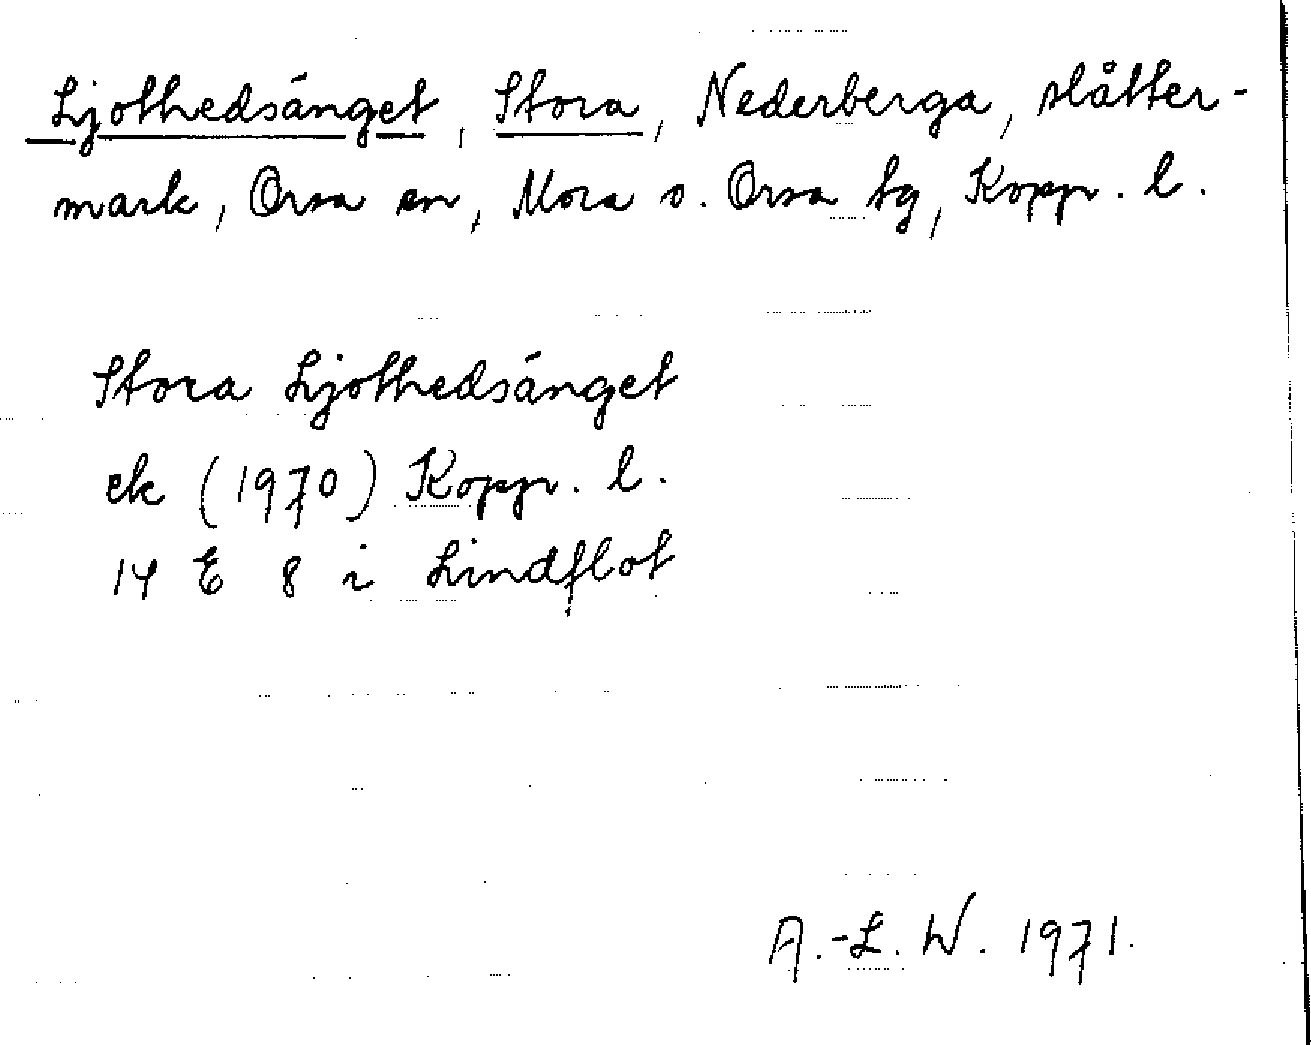 Ljothedsänget, Stora, Nederberga, slåtter-
mark, Orsa sn, Mora o. Orsa tg, Kopp. l.
Stora Ljothedsänget
ek (1970) Kopp. l.
14 E 8 i Lindflot
A.-L. W. 1971.